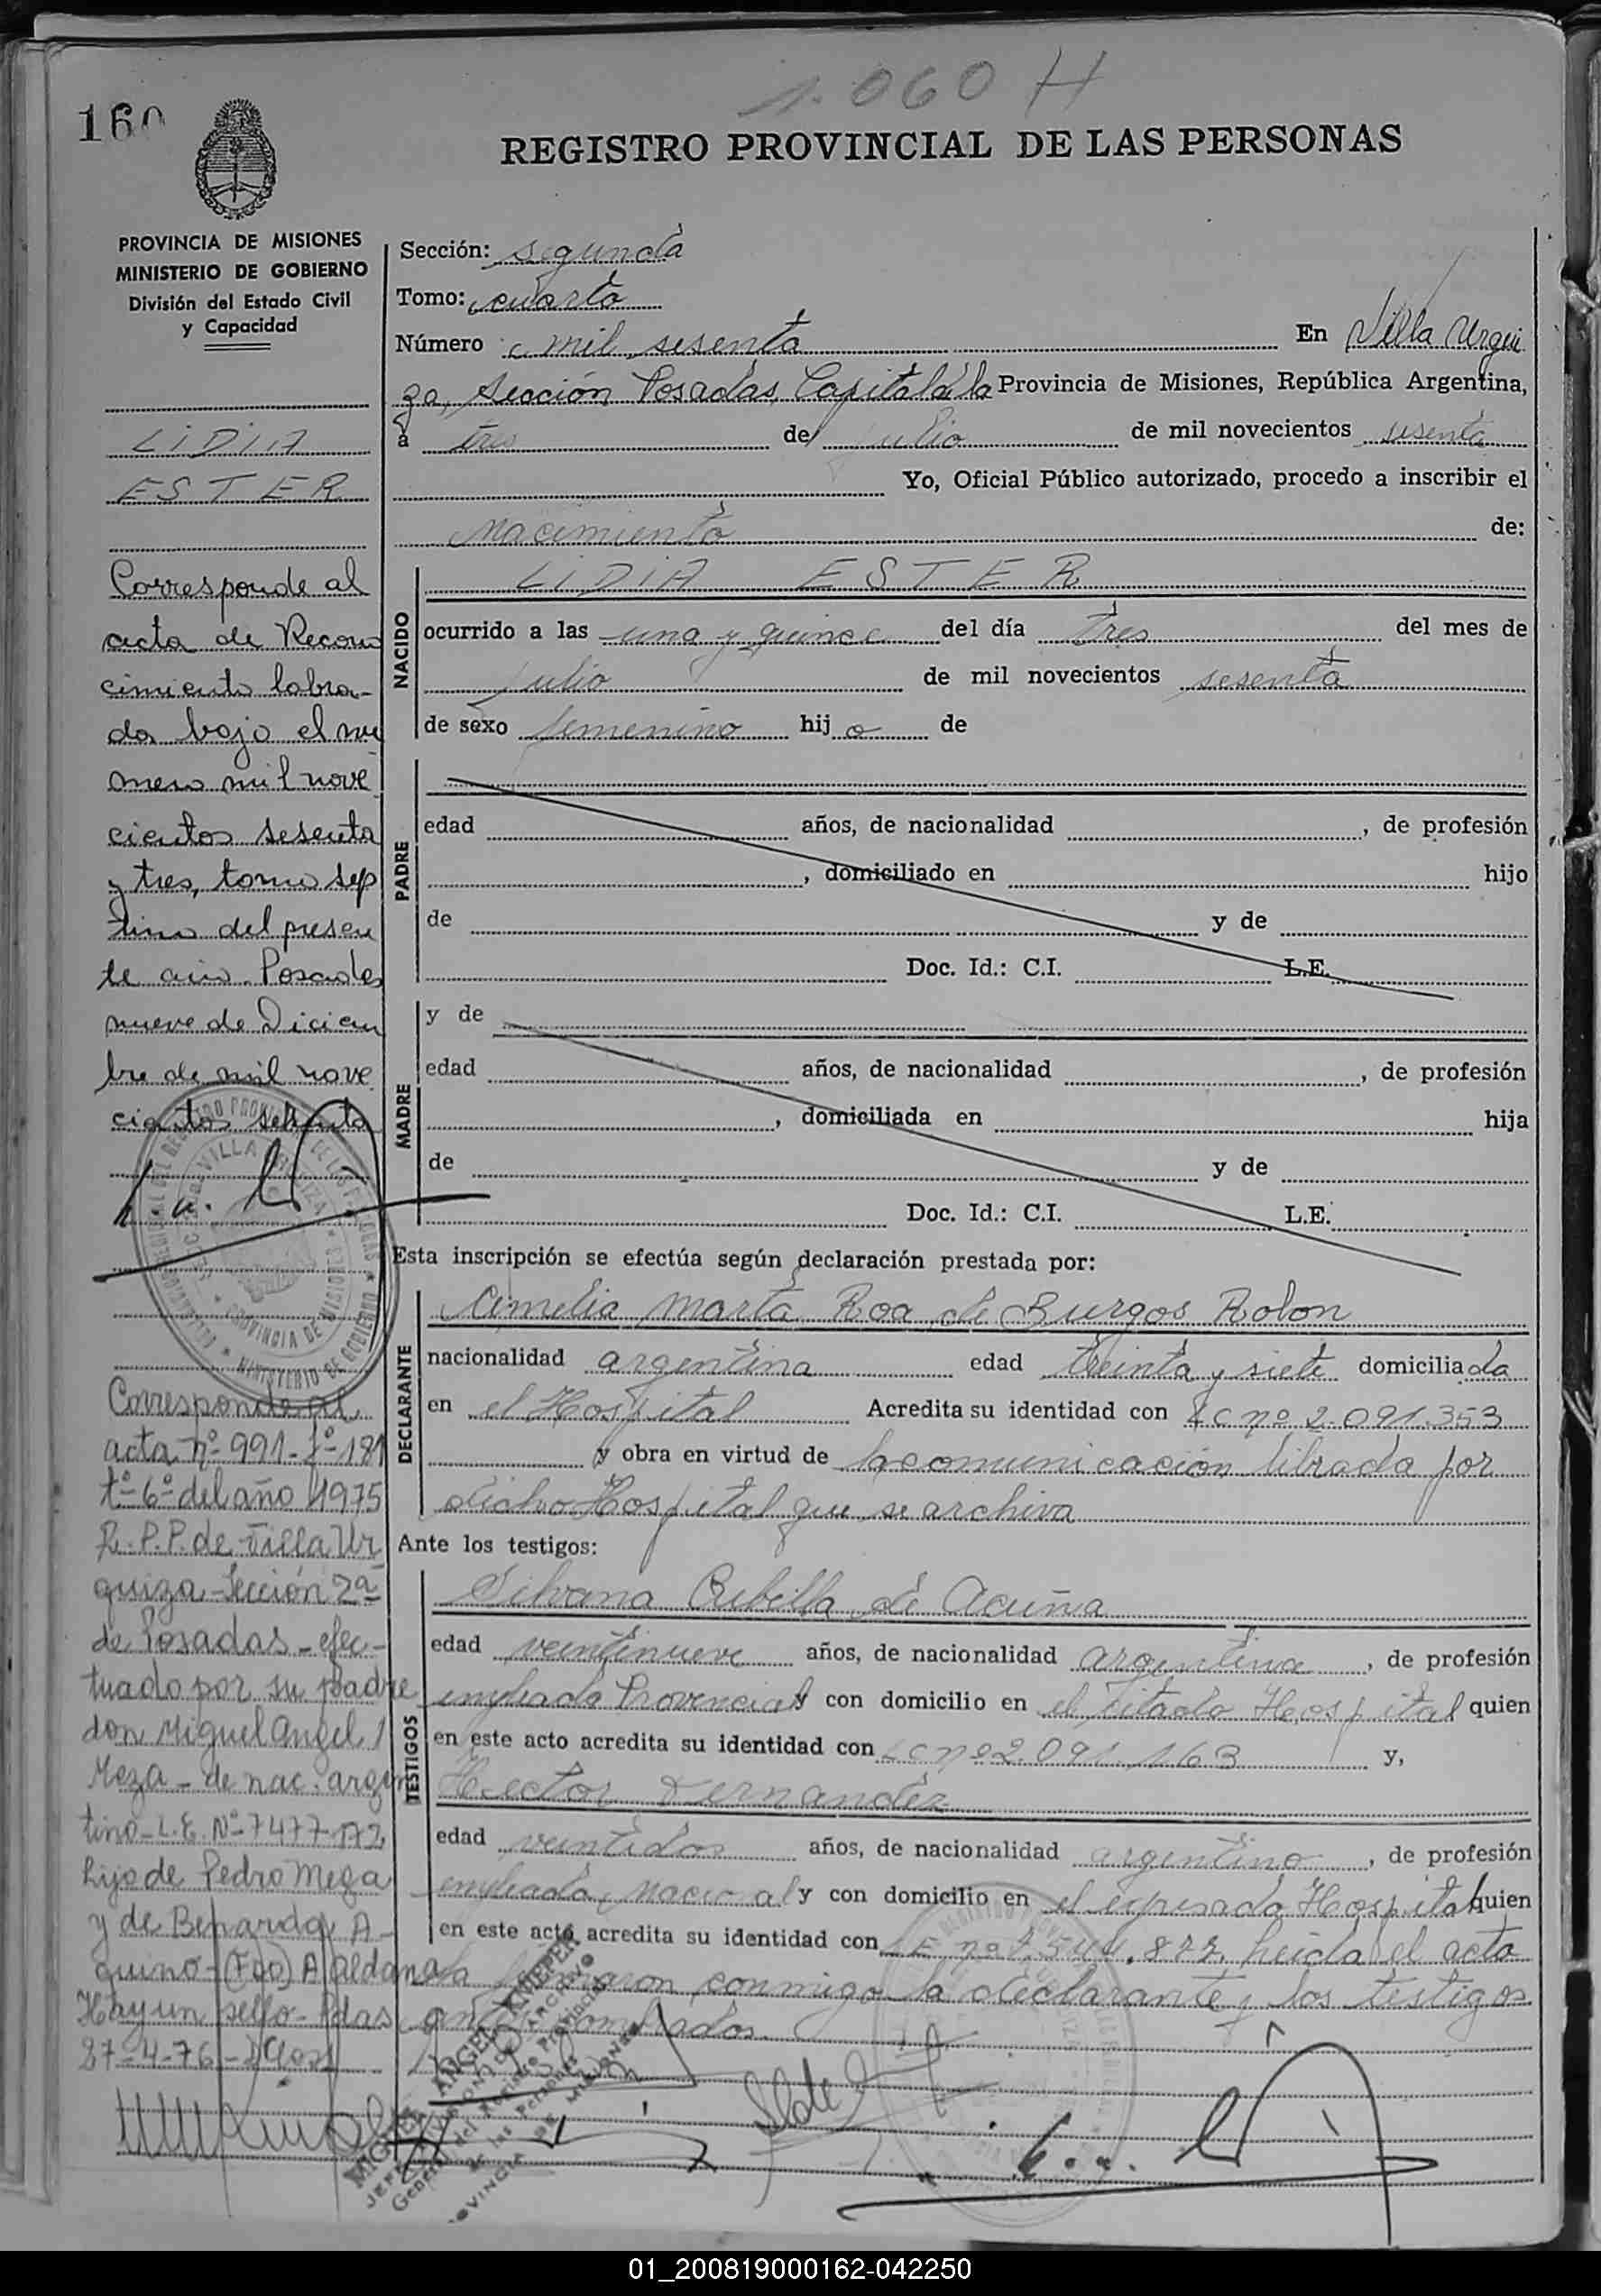 1.060 H
160
REGISTRO PROVINCIAL DE LAS PERSONAS
PROVINCIA DE MISIONES
MINISTERIO DE GOBIERNO
División del Estado Civil
y Capacidad
LIDIA
ESTER
Corresponde al
acta de Recono
cimiento labra-
da bajo el nu
mero mil nove
cientos sesenta
y tres, tomo sep
timo del presen
te año. Posadas
nueve de Diciem
bre de mil nove
cientos sesenta
Corresponde al
acta nº 991-fº-181
tº-6º del año 1975
R.P.P. de Villa Ur
quiza-Sección 2ª
de Posadas-efec-
tuado por su padre
don Miguel Angel
Meza-de nac. argen
tino-L.E. Nº 7477172
hijo de Pedro Meza
y de
quino-(Fdo) A Aldana
Hay un sello-Pdas
27-4-76-
Sección: segunda
Tomo: cuarto
Número mil sesenta En Villa Urqui
za, Sección Posadas, Capital de la Provincia de Misiones, República Argentina,
a tres de julio de mil novecientos sesenta
Yo, Oficial Público autorizado, procedo a inscribir el
nacimiento de:
NACIDO
LIDIA ESTER
ocurrido a las una y quince del día tres del mes de
julio de mil novecientos sesenta
de sexo femenino hij a de
PADRE
edad años, de nacionalidad , de profesión
, domiciliado en hijo
de y de
Doc. Id.: C.I. L.E.
MADRE
y de
edad años, de nacionalidad , de profesión
, domiciliada en hija
de y de
Doc. Id.: C.I. L.E.
Esta inscripción se efectúa según declaración prestada por:
DECLARANTE
Amelia Marta Roa de Burgos Rolon
nacionalidad argentina edad treinta y siete domiciliada
en el Hospital Acredita su identidad con LC nº 2.091.353
y obra en virtud de la comunicación librada por
dicho Hospital que se archiva
Ante los testigos:
TESTIGOS
Silvana Cubilla de Acuña
edad veintinueve años, de nacionalidad argentina , de profesión
empleada Provincial y con domicilio en el citado Hospital quien
en este acto acredita su identidad con LC nº 2.091.163 y,
Hector Fernandez
edad veintidos años, de nacionalidad argentino , de profesión
empleado nacional y con domicilio en el expresado Hospital quien
en este acto acredita su identidad con LE nº 7.544.822. Leída el acta
la firmaron conmigo la declarante y los testigos
antes nombrados.
MIGUEL ANGEL
01_200819000162-042250